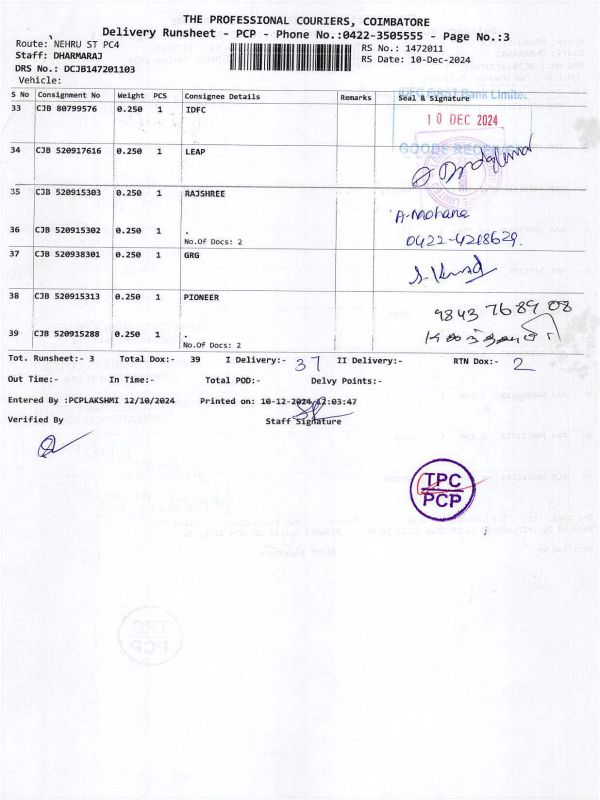 THE PROFESSIONAL COURIERS, COIMBATORE
Delivery Runsheet - PCP - Phone No.:0422-3505555 - Page No.:3
Route: NEHRU ST PC4
RS No.: 1472011
Staff: DHARMARAJ
RS Date: 10-Dec-2024
DRS No.: DCJB147201103
Vehicle:
S No Consignment No Weight PCS Consignee Details Remarks Seal & Signature
IDFC First Bank Limited
33 CJB 80799576 0.250 1 IDFC
10 DEC 2024
34 CJB 520917616 0.250 1 LEAP
GOODS RECEIVED
35 CJB 520915303 0.250 1 RAJSHREE
A-Mohana
36 CJB 520915302 0.250 1 .
No.Of Docs: 2
0422-4218629.
37 CJB 520938301 0.250 1 GRG
38 CJB 520915313 0.250 1 PIONEER
9843 768908
39 CJB 520915288 0.250 1 .
No.Of Docs: 2
Tot. Runsheet:- 3 Total Dox:- 39 I Delivery:- 37 II Delivery:- RTN Dox:- 2
Out Time:- In Time:- Total POD:- Delvy Points:-
Entered By :PCPLAKSHMI 12/10/2024 Printed on: 10-12-2024 12:03:47
Verified By Staff Signature
TPC
PCP